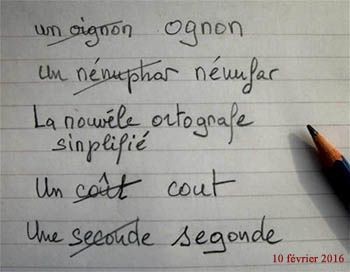 un oignon ognon
un nénuphar nénufar
La nouvéle ortografe
sinplifié
Un coût cout
Une seconde segonde
10 février 2016